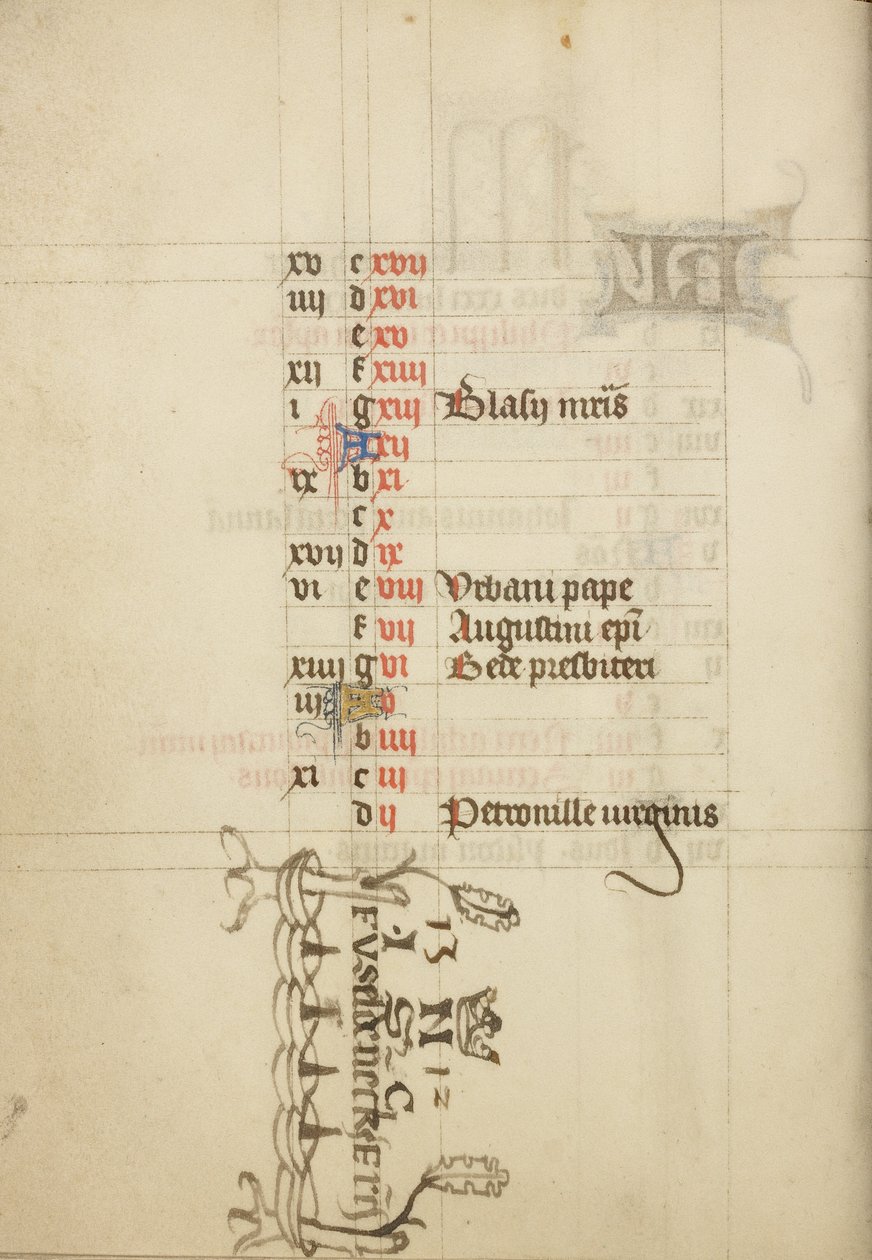 xv c xvij
iiij d xvi
e xv
xij f xiiij
i g xiij Blasij mris
A xij
ix b xi
c x
xvij d ix
vi e viij Vrbani pape
f vij Augustini epi
xiiij g vi Bede presbiteri
iij A v
b iiij
xi c iij
d ij Petronille uirginis
13 N 12
I S C